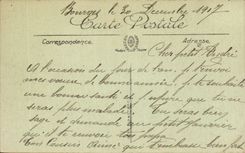 Bourges le 30 Decembre 1917
Carte Postale
Correspondance. Adresse.
Cher petit André
A l'occasion du jour de l'an, je t'envoie
mes voeux de bonne année, je te souhaite
une bonne santé et j'espère que tu ne
seras plus malade. Tu seras bien
sage et demande au petit
qu'il te envoie ton papa.
Ton Cousin qui t'embrasse bien fort